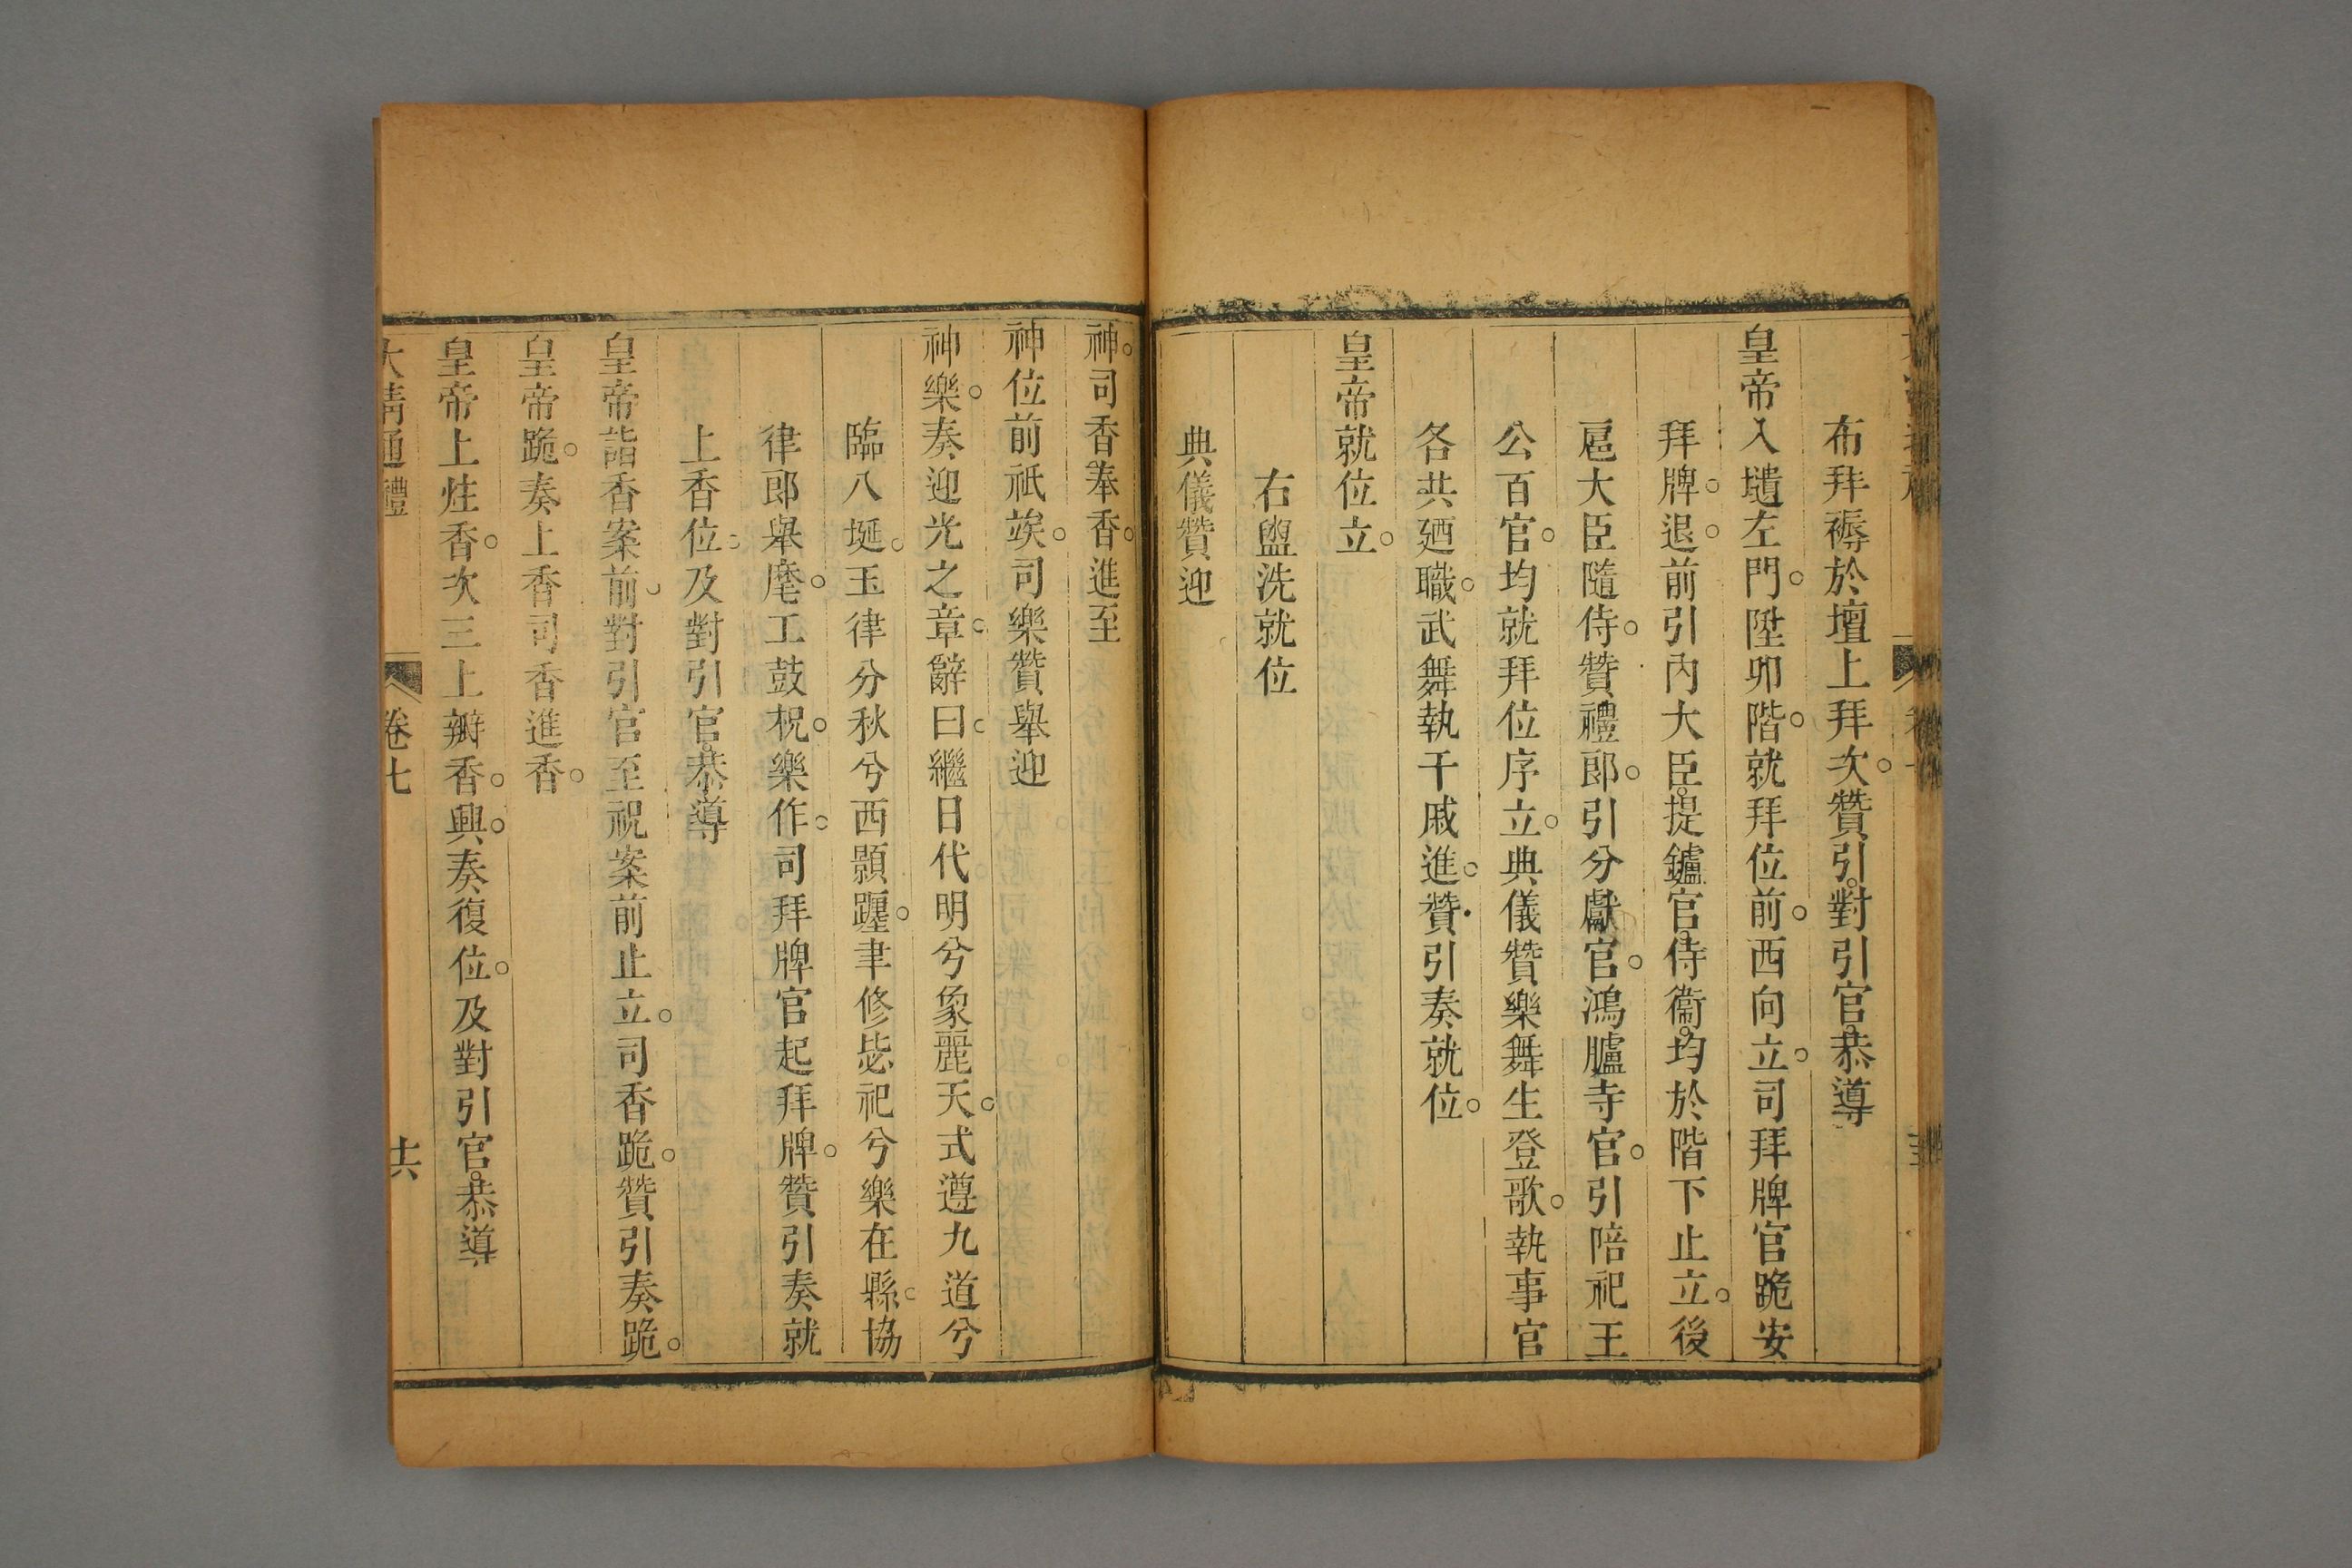 布拜褥於壇上拜次。贊引。對引官。恭導
皇帝入壝左門。陞卯階。就拜位前。西向立。司拜牌官跪安
拜牌。退。前引內大臣。提鑪官。侍衞。均於階下止立。後
扈大臣隨侍。贊禮郞。引分獻官。鴻臚寺官。引陪祀王
公百官。均就拜位序立。典儀贊樂舞生登歌。執事官
各共廼職。武舞執干戚進。贊引奏就位。
皇帝就位立。
右盥洗就位
典儀贊迎
神。司香奉香。進至
神位前祇竢。司樂贊舉迎
神樂。奏迎光之章。辭曰。繼日代明兮象麗天。式遵九道兮
臨八埏。玉律分秋兮西顥躔。聿修毖祀兮樂在縣。協
律郞舉麾。工鼓柷。樂作。司拜牌官起拜牌。贊引奏就
上香位。及對引官。恭導
皇帝詣香案前。對引官至祝案前止立。司香跪。贊引奏跪。
皇帝跪。奏上香。司香進香。
皇帝上炷香。次三上瓣香。興。奏復位。及對引官。恭導
大淸通禮
卷七
十六